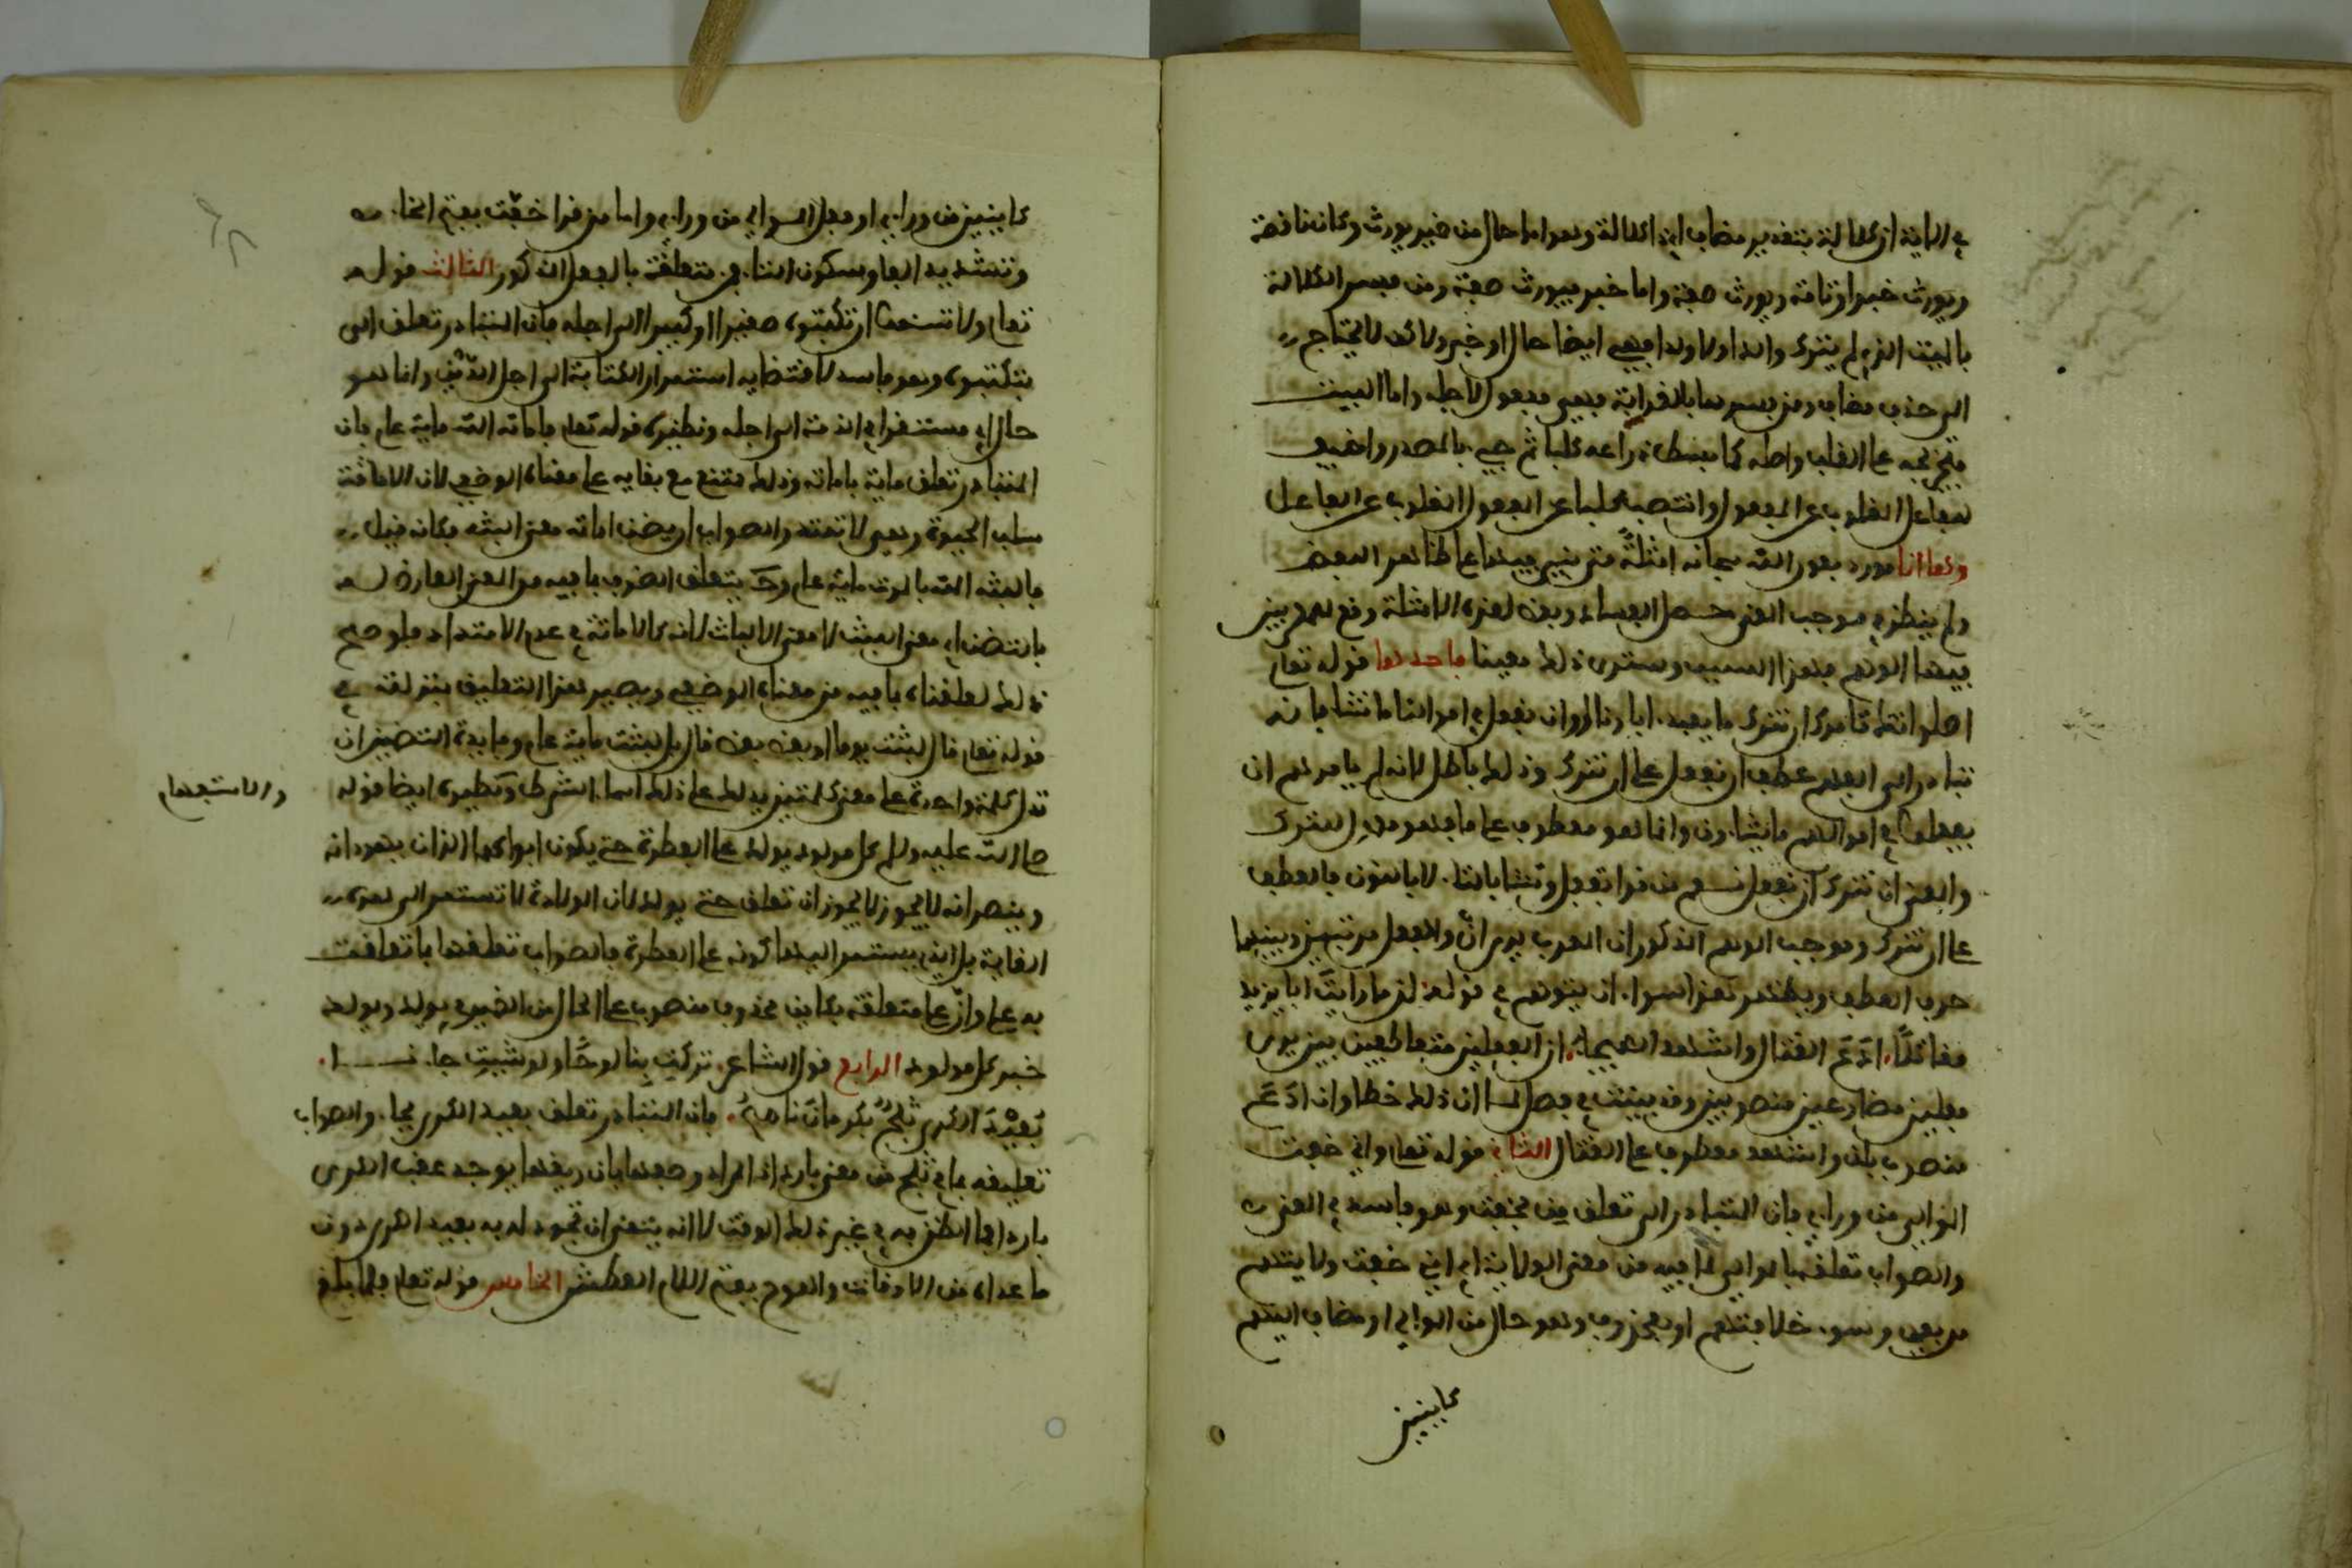 في الاية ان كلالة بتقدير مضاف اي ذا كلالة وهو اما حال من ضمير يورث وكان ناقصة
ويورث خبر او تامة ويورث صفة واما خبر فيورث صفة ومن فسر الكلالة
بالميت الذي لم يترك والدا ولا ولدا فهي ايضا حال او خبر ولاكن لا يحتاج
الى حذف مضاف ومن فسرها بالقرابة فهي مفعول لاجله واما البيت
فتخريجه على القلب واصله كما بسط ذراعيه كلبا ثم جيء بالمصدر واضيف
للفاعل المقلوب عن المفعول وانتصب كلبا عن المفعول المقلوب عن الفاعل
وها انا مورد بعون الله سبحانه امثلة متى بني فيها على ظاهر اللفظ
ولم ينظر في موجب المعنى حصل الفساد وبعض هذه الامثلة وقع للمعربين
فيها الوهم بهذا السبب وسترى ذلك معينا فاحدها قوله تعلى
اصلواتك تامرك ان نترك ما يعبد اباونا او ان نفعل في اموالنا ما نشا فانه
تبادر الى الفهم عطف ان نفعل على ان نترك وذلك باطل لانه لم يامرهم ان
يفعلوا في اموالهم ما يشاءون وانما هو معطوف على ما فهو معمول للترك
والمعنى ان نترك ان نفعل نعم من قرا تفعل وتشا بالتاء لا بالنون فالعطف
على ان نترك وموجب الوهم المذكور ان المعرب يرى ان والفعل مرتين وبينهما
حرف العطف ونظير هذا سواء ان يتوهم في قوله لن ما رايت ابا يزيد
مقاتلا ادع القتال واشهد الهيجاء ان الفعلين متعاطفين حين يرى
فعلين مضارعين منصوبين وقد بينت في فصل لما ان ذلك خطا وان ادع
منصوب بلن واشهد معطوف على القتال الثاني قوله تعلى واني خفت
الموالي من وراءي فان المتبادر الى تعلق من بخفت وهو فاسد في المعنى
والصواب تعلقها بالموالي لما فيه من معنى الولاية اي اني خفت ولايتهم
من بعدي وسوء خلافتهم او بمحذوف وهو حال من الموالي او مضاف اليهم
كاينين
كاينين من وراءي او فعل الموالي من وراءي واما من قرا خفت بفتح الخاء
وتشديد الفا وسكون التاء فمن متعلقة بالفعل المذكور الثالث قوله
تعلى ولا تسئموا ان تكتبوه صغيرا او كبيرا الى اجله فان المتبادر تعلق الى
بتكتبوه وهو فاسد لاقتضايه استمرار الكتابة الى اجل الدين وانما هو
حال اي مستقرا في الذمة الى اجله ونظيره قوله تعلى فاماته الله ماية عام فان
المتبادر تعلق ماية باماته وذلك ممتنع مع بقايه على معناه الوضعي لان الاماتة
سلب الحيوة وهي لا تمتد والصواب ان يضمن اماته معنى البثه فكانه قيل
فالبثه الله بالموت ماية عام وح يتعلق الظرف بما فيه من المعنى العارض له
بالتضمين اي معنى اللبث لا معنى الالباث لانه كالاماتة في عدم الامتداد فلو صح
ذلك لعلقناه بما فيه من معناه الوضعي ويصير هذا التعليق بمنزلته في
قوله تعلى قال لبثت يوما او بعض يوم قال بل لبثت ماية عام وفايدة التضمين ان
تدل كلمة واحدة على معنى كلمتين يدلك على ذلك اسماء الشرط ونظيره ايضا قوله
والاستفهام
صلى الله عليه وسلم كل مولود يولد على الفطرة حتى يكون ابواه هما اللذان يهودانه
وينصرانه لا يجوز لا يجوز ان تعلق حتى بيولد لان الولادة لا تستمر الى هذه
الغاية بل الذي يستمر اليها كونه على الفطرة فالصواب تعلقها بما تعلقت
به على وان على متعلقة بكاين محذوف منصوب على الحال من الضمير في يولد ويولد
خبر كل مولود الرابع قول الشاعر تركت بنا لوحا ولو شيت جادنا
بعيد الكرى ثلج بكرمان ناصح فان المتبادر تعلق بعيد الكرى بجاد والصواب
تعليقه بما في ثلج من معنى بارد اذ المراد وصفها بان ريقها يوجد عقب الكرى
باردا فما الظن به في غير ذلك الوقت لا انه يتمنى ان تجود له به بعيد الكرى دون
ما عداه من الاوقات واللوح بفتح اللام العطش الخامس قوله تعلى فلما بلغ